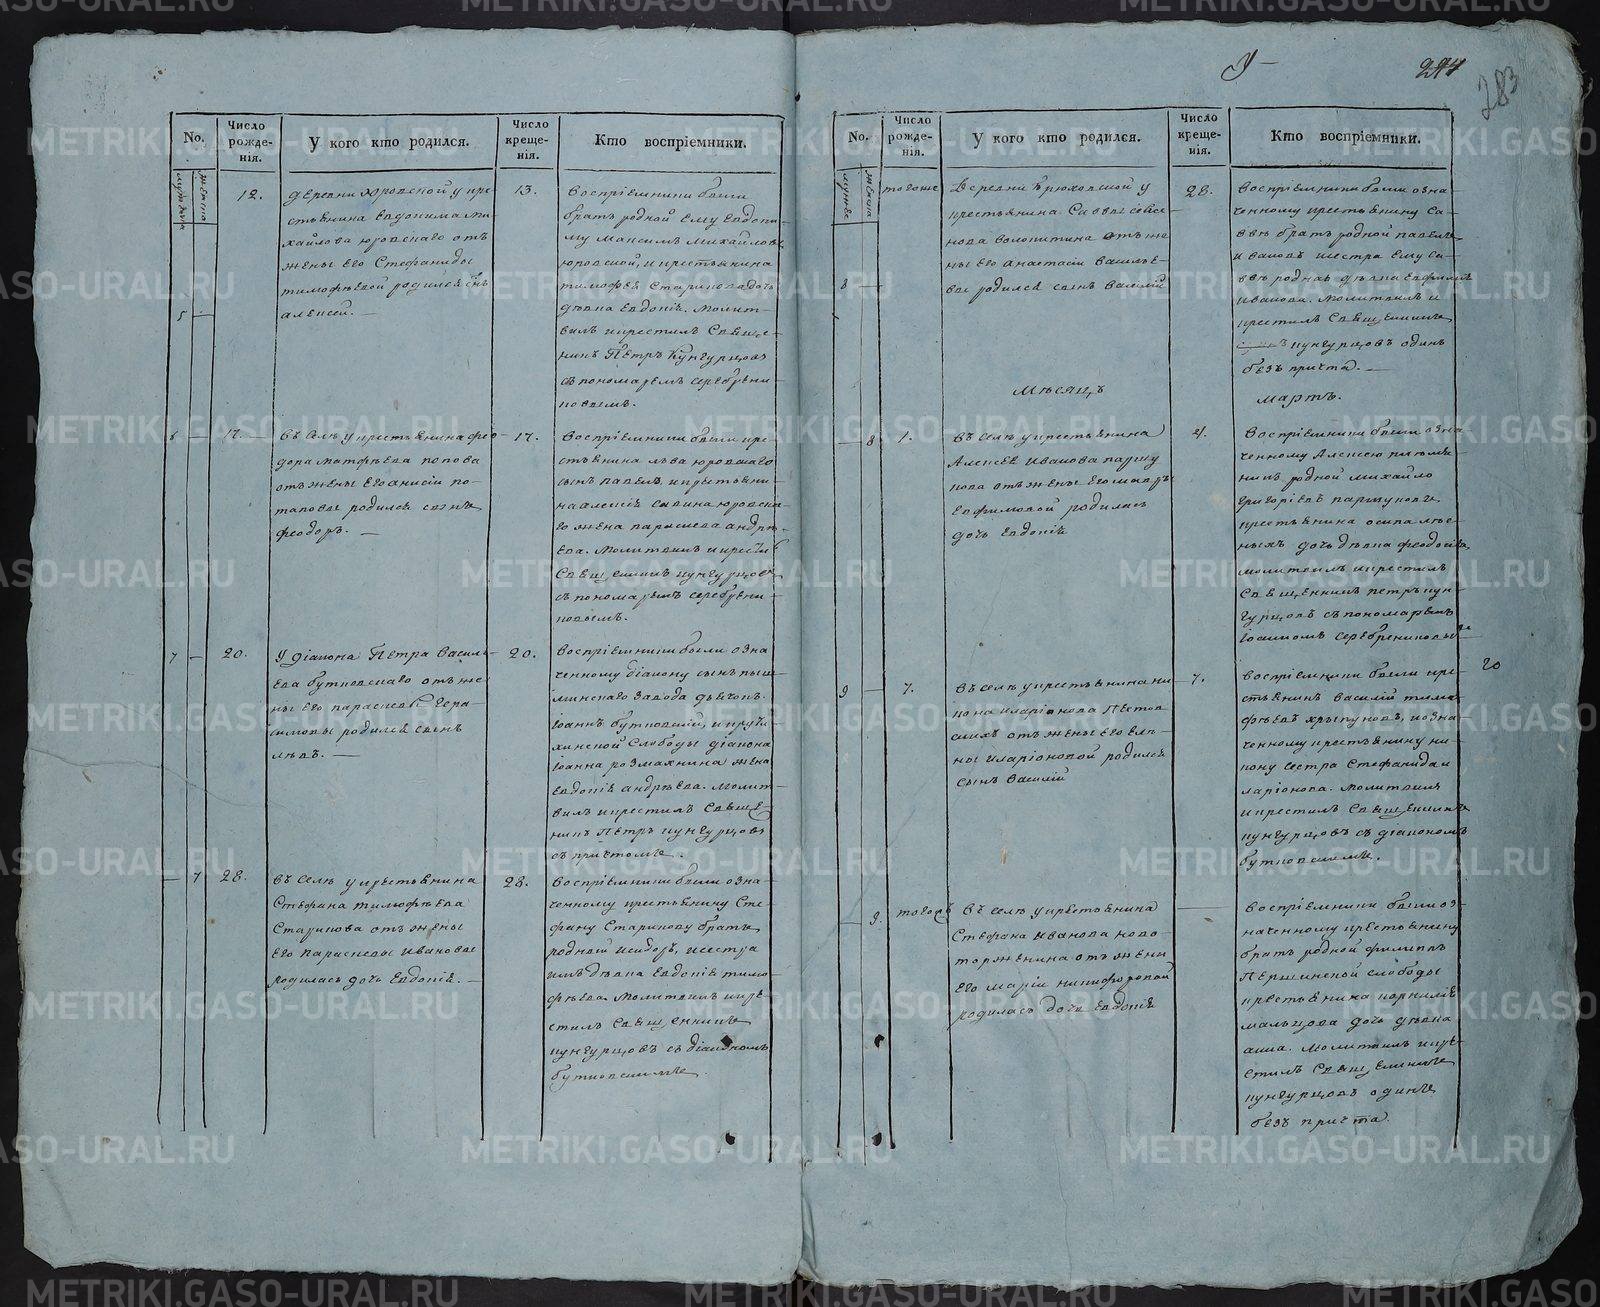 294
283
No.
Число рожденія.
У кого кто родился.
Число крещенія.
Кто воспріемники.
5
12.
деревни Юровской у кре-
стьянина Евдокима Ми-
хайлова Юровскаго отъ
жены его Стефаниды
Тимофѣевой родился сынъ
Алексей. —
13.
воспріемники были
братъ родной ему Евдоки-
му Максимъ Михайловъ
Юровской, и крестьянина
Тимофея Старикова дочь
дѣвка Евдокія. Молит-
вилъ и крестилъ Свяще-
никъ Петръ Кунгурцовъ
съ пономаремъ Серебрени-
ковымъ.
6 — 17. —
въ селѣ у крестьянина Фео-
дора Матфѣева Попова
отъ жены его Анисіи По-
таповы родился сынъ
Феодоръ. —
17.
воспріемники были кре-
стьянина Льва Юровскаго
сынъ Павелъ, и крестьяни-
на Алексія Савина Юровска-
го жена Параскева Андрѣ-
ева. Молитвилъ и крестилъ
Священникъ Кунгурцовъ
съ пономаремъ Серебрени-
ковымъ.
7 — 20.
У діакона Петра Василь-
ева Бутковскаго отъ же-
ны его Параскевы Гера-
симовы родился сынъ
Левъ. —
20.
воспріемники были озна-
ченному діакону сынъ Пыш-
минскаго завода дьячокъ
Іоаннъ Бутковскій, и
слободы діакона
Іоанна Розмахнина жена
Евдокія Андрѣева. Молит-
вилъ и крестилъ Свяще-
никъ Петръ Кунгурцовъ
съ причтомъ.
— 7 28.
въ селѣ у крестьянина
Стефана Тимофѣева
Старикова отъ жены
его Параскевы Ивановы
родилась дочь Евдокія. —
28.
воспріемники были озна-
ченному крестьянину Сте-
фану Старикову братъ
родный и сестра
ихъ дѣвка Евдокія Тимо-
фѣева. Молитвилъ и кре-
стилъ Священникъ
Кунгурцовъ съ діакономъ
Бутковскимъ.
No.
Число рожденія.
У кого кто родился.
Число крещенія.
Кто воспріемники.
8 —
тогоже
Деревни Крюковской у
крестьянина Саввы
отъ же-
ны его Анастасіи Василье-
вы родился сынъ Василій
28.
воспріемники были озна-
ченному крестьянину Са-
ввѣ братъ родной Павелъ
Ивановъ и сестра ему Са-
ввѣ родная дѣвка Евфимія
Иванова. Молитвилъ и
крестилъ Священникъ
Кунгурцовъ одинъ
безъ причта. —
Мѣсяцъ
Мартъ.
— 8 1.
въ селѣ у крестьянина
Алексея Иванова Паршу-
кова отъ жены его Мавры
Евфимовой родилась
дочь Евдокія
4.
воспріемники были озна-
ченному Алексею племя-
никъ родной Михайло
Григоріевъ Паршуковъ,
крестьянина Осипа
дочь дѣвка Феодосія,
молитвилъ и крестилъ
Священникъ Петръ Кун-
гурцовъ съ пономаремъ
Іоанномъ Серебрениковымъ
9 — 7.
въ селѣ у крестьянина Ни-
кона Иларіонова
отъ жены его Еле-
ны Иларіоновой родился
сынъ Василій
7.
воспріемники были кре-
стьянинъ Василій Тимо-
фѣевъ Хрыпуновъ, и озна-
ченному крестьянину Ни-
кону сестра Стефанида И-
ларіонова. Молитвилъ
и крестилъ Священникъ
Кунгурцовъ съ діакономъ
Бутковскимъ.
20
— 9. тогожъ
въ селѣ у крестьянина
Стефана Иванова Ново-
торженина отъ жены
его Маріи Никифоровой
родилась дочь Евдокія
воспріемники были оз-
наченному крестьянину
братъ родной Филиппъ
Першинской слободы
крестьянина Корнилія
Мальцова дочь дѣвка
Анна. Молитвилъ и кре-
стилъ Священникъ
Кунгурцовъ одинъ
безъ причта.
METRIKI.GASO-URAL.RU